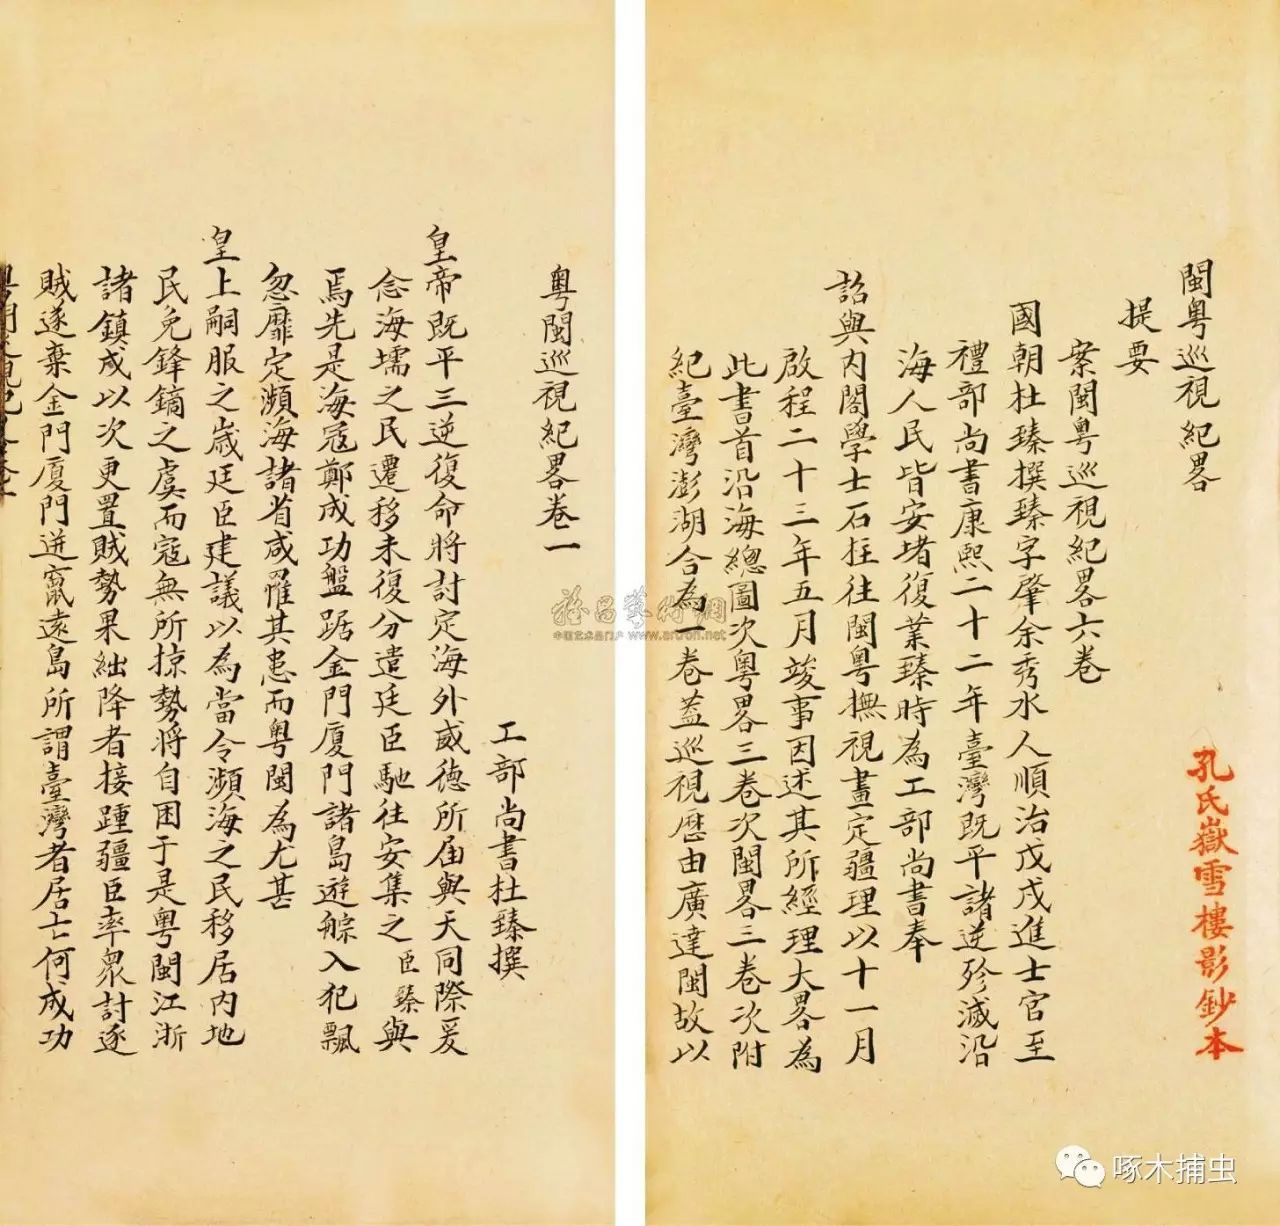 閩粵巡視紀畧
提要
案閩粵巡視紀畧六卷
國朝杜臻撰臻字肇余秀水人順治戊戌進士官至
禮部尚書康熙二十二年臺灣既平諸逆殄滅沿
海人民皆安堵復業臻時為工部尚書奉
詔與內閣學士石柱往閩粵撫視畫定疆理以十一月
啟程二十三年五月竣事因述其所經理大畧為
此書首沿海總圖次粵畧三卷次閩畧三卷次附
紀臺灣澎湖合為一卷蓋巡視歷由廣達閩故以
孔氏嶽雪樓影鈔本
粵閩巡視紀畧卷一
工部尚書杜臻撰
皇帝既平三逆復命將討定海外威德所届與天同際爰
念海壖之民遷移未復分遣廷臣馳往安集之臣臻與
焉先是海寇鄭成功盤踞金門廈門諸島遊䑸入犯飄
忽靡定瀕海諸省咸罹其患而粵閩為尤甚
皇上嗣服之歲廷臣建議以為當令瀕海之民移居內地
民免鋒鏑之虞而寇無所掠勢將自困于是粵閩江浙
諸鎮戍以次更置賊勢果絀降者接踵疆臣率衆討逐
賊遂棄金門廈門迸竄遠島所謂臺灣者居亡何成功
雅昌藝術網
中国艺术品门户 www.artron.net
啄木捕虫